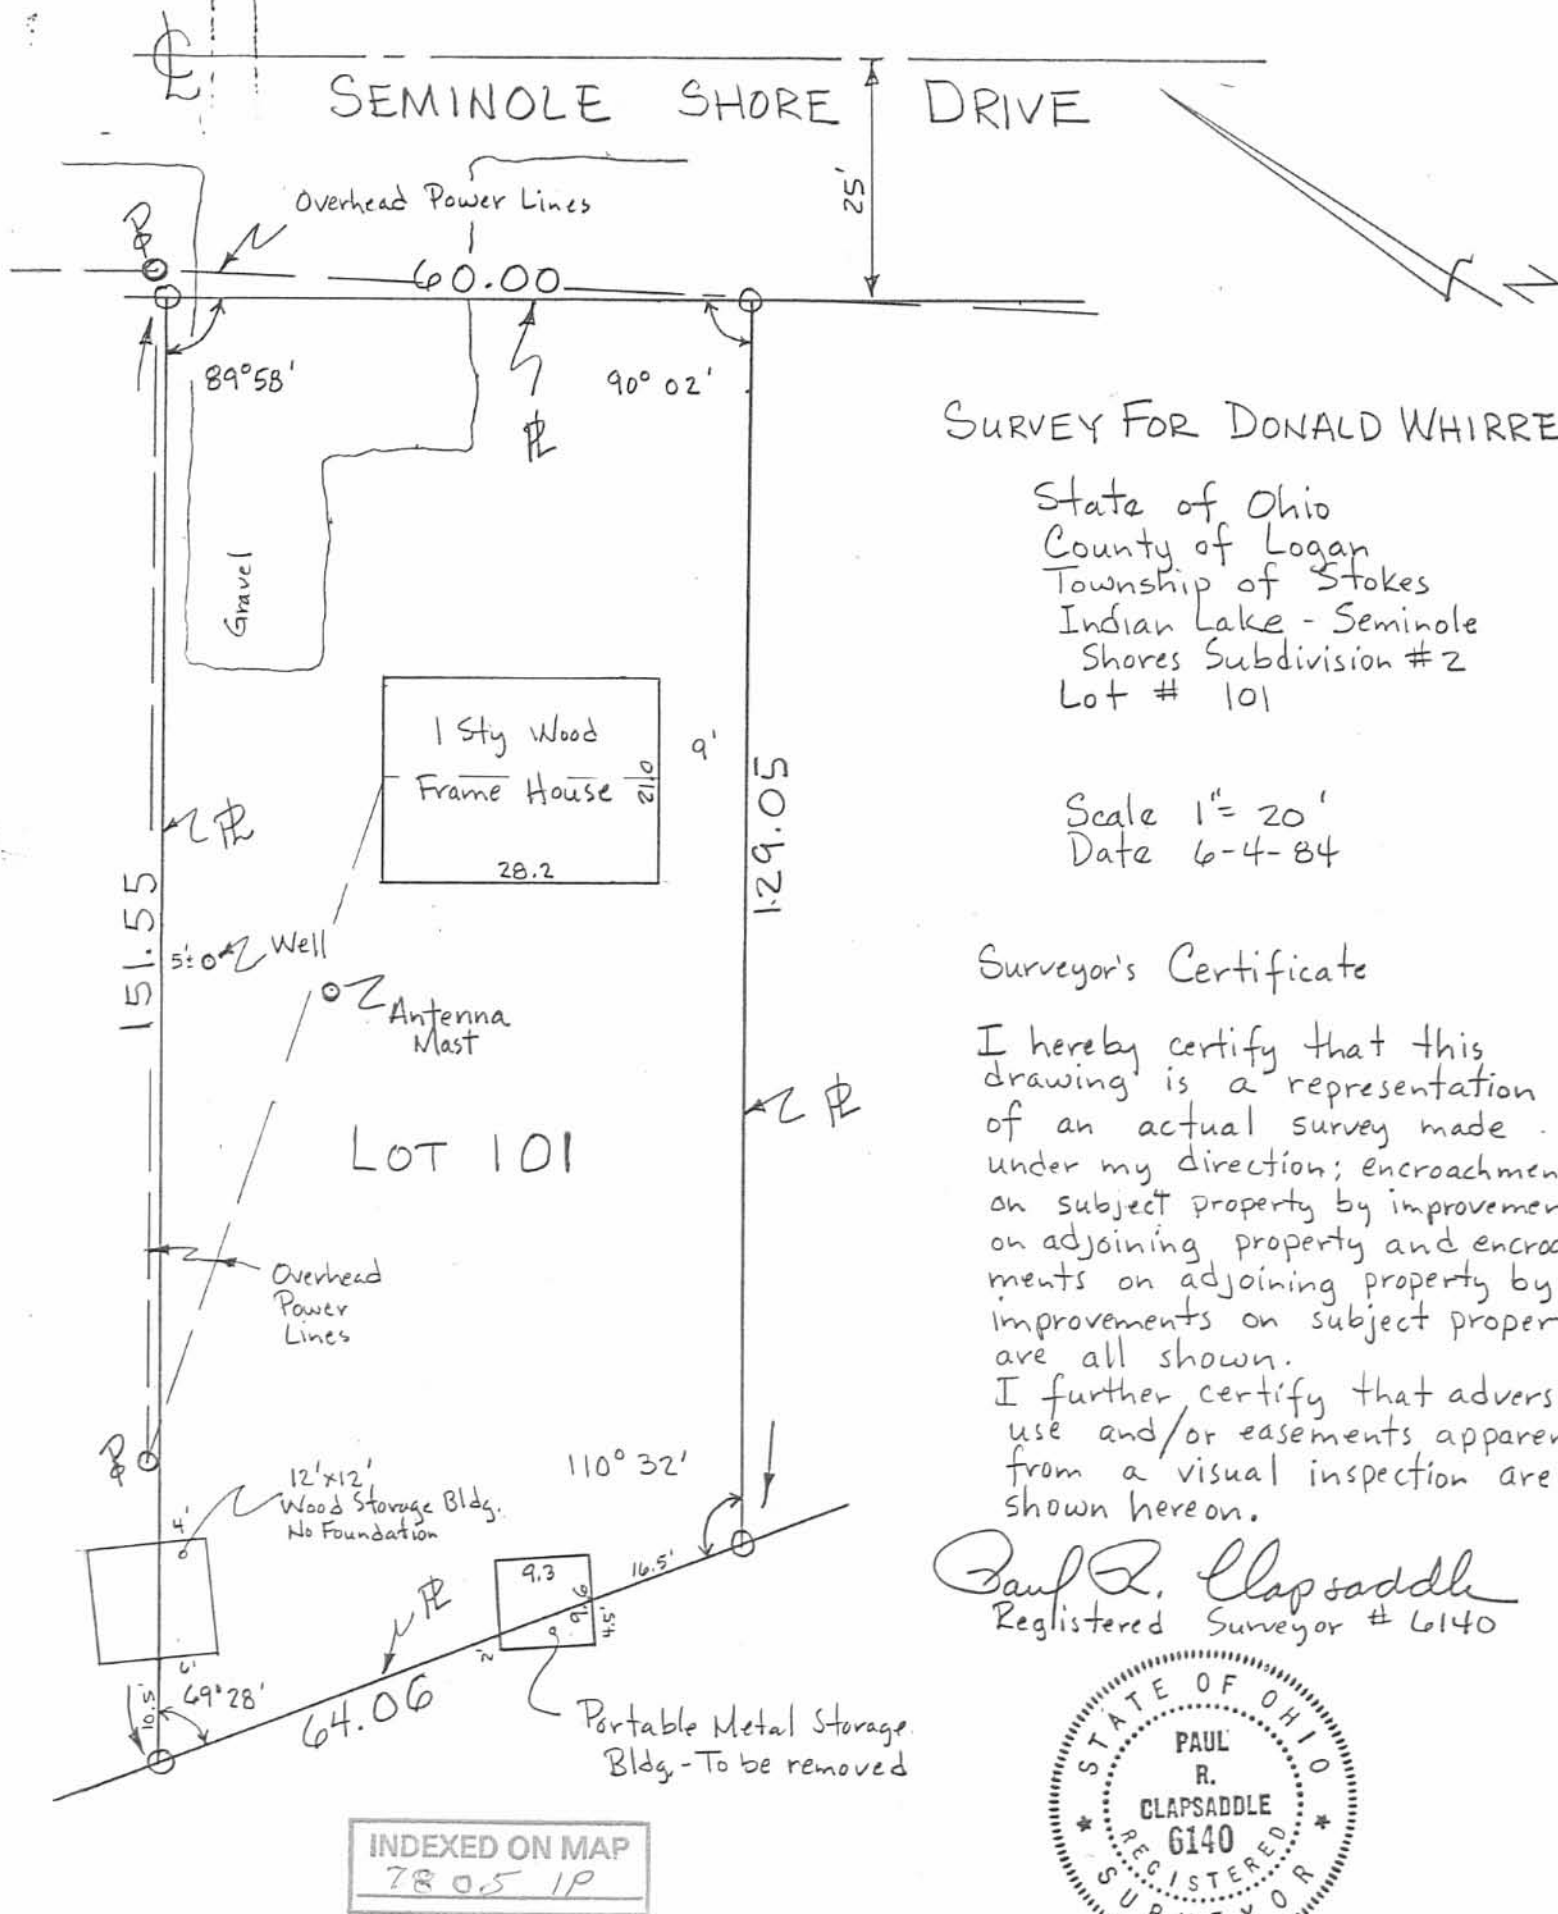 ℄
SEMINOLE SHORE DRIVE
25'
Overhead Power Lines
60.00
89°58'
90° 02'
℄
Gravel
1 Sty Wood
Frame House
21.0
28.2
9'
151.55
129.05
5'± Well
Antenna
Mast
LOT 101
Overhead
Power
Lines
12'x12'
Wood Storage Bldg.
No Foundation
4'
6'
10.5'
69°28'
64.06
110° 32'
9.3
9.6
16.5'
4.5'
2'
Portable Metal Storage
Bldg.-To be removed
SURVEY FOR DONALD WHIRRE
State of Ohio
County of Logan
Township of Stokes
Indian Lake - Seminole
Shores Subdivision #2
Lot # 101
Scale 1"= 20'
Date 6-4-84
Surveyor's Certificate
I hereby certify that this
drawing is a representation
of an actual survey made
under my direction; encroachmen
on subject property by improvemen
on adjoining property and encroa
ments on adjoining property by
improvements on subject proper
are all shown.
I further certify that advers
use and/or easements apparen
from a visual inspection are
shown hereon.
Paul R. Clapsaddle
Registered Surveyor # 6140
STATE OF OHIO
PAUL
R.
CLAPSADDLE
6140
REGISTERED
SURVEYOR
INDEXED ON MAP
7805 1P